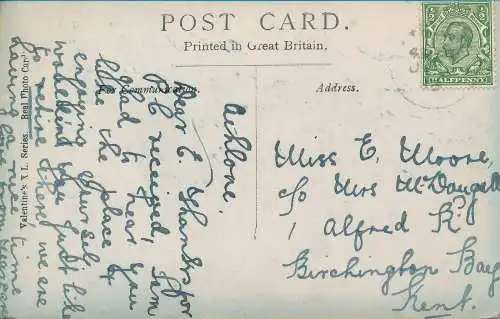 POST CARD.
Printed in Great Britain.
For Communication.
Address.
Valentine's X L Series. Real Photo Card
HALFPENNY
Athlone.
Dear E. Thanks for
P.C received, am
glad to hear you
like the place &
enjoying yourself
no behind you just like
to retire there we are
having a nice time
Miss E. Moore,
c/o Mrs McDougall
1 Alfred Rd
Birchington Bay
Kent.